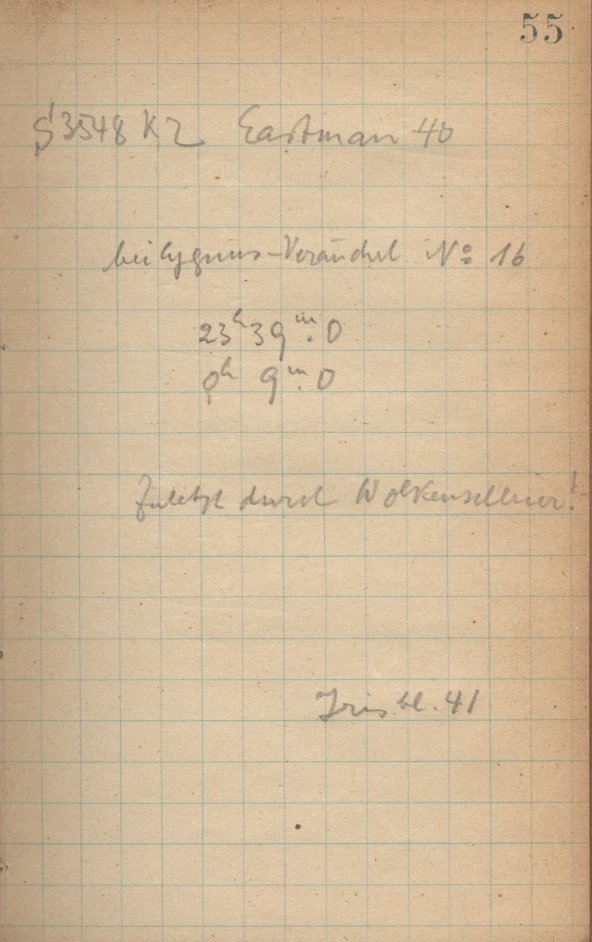 55
S 3548 K2 Eastman 40
bei Cygnus-Verändl No 16
23h 39m.0
0h 9m.0
Zuletzt durch Wolkenschleier!
Iris bl. 41